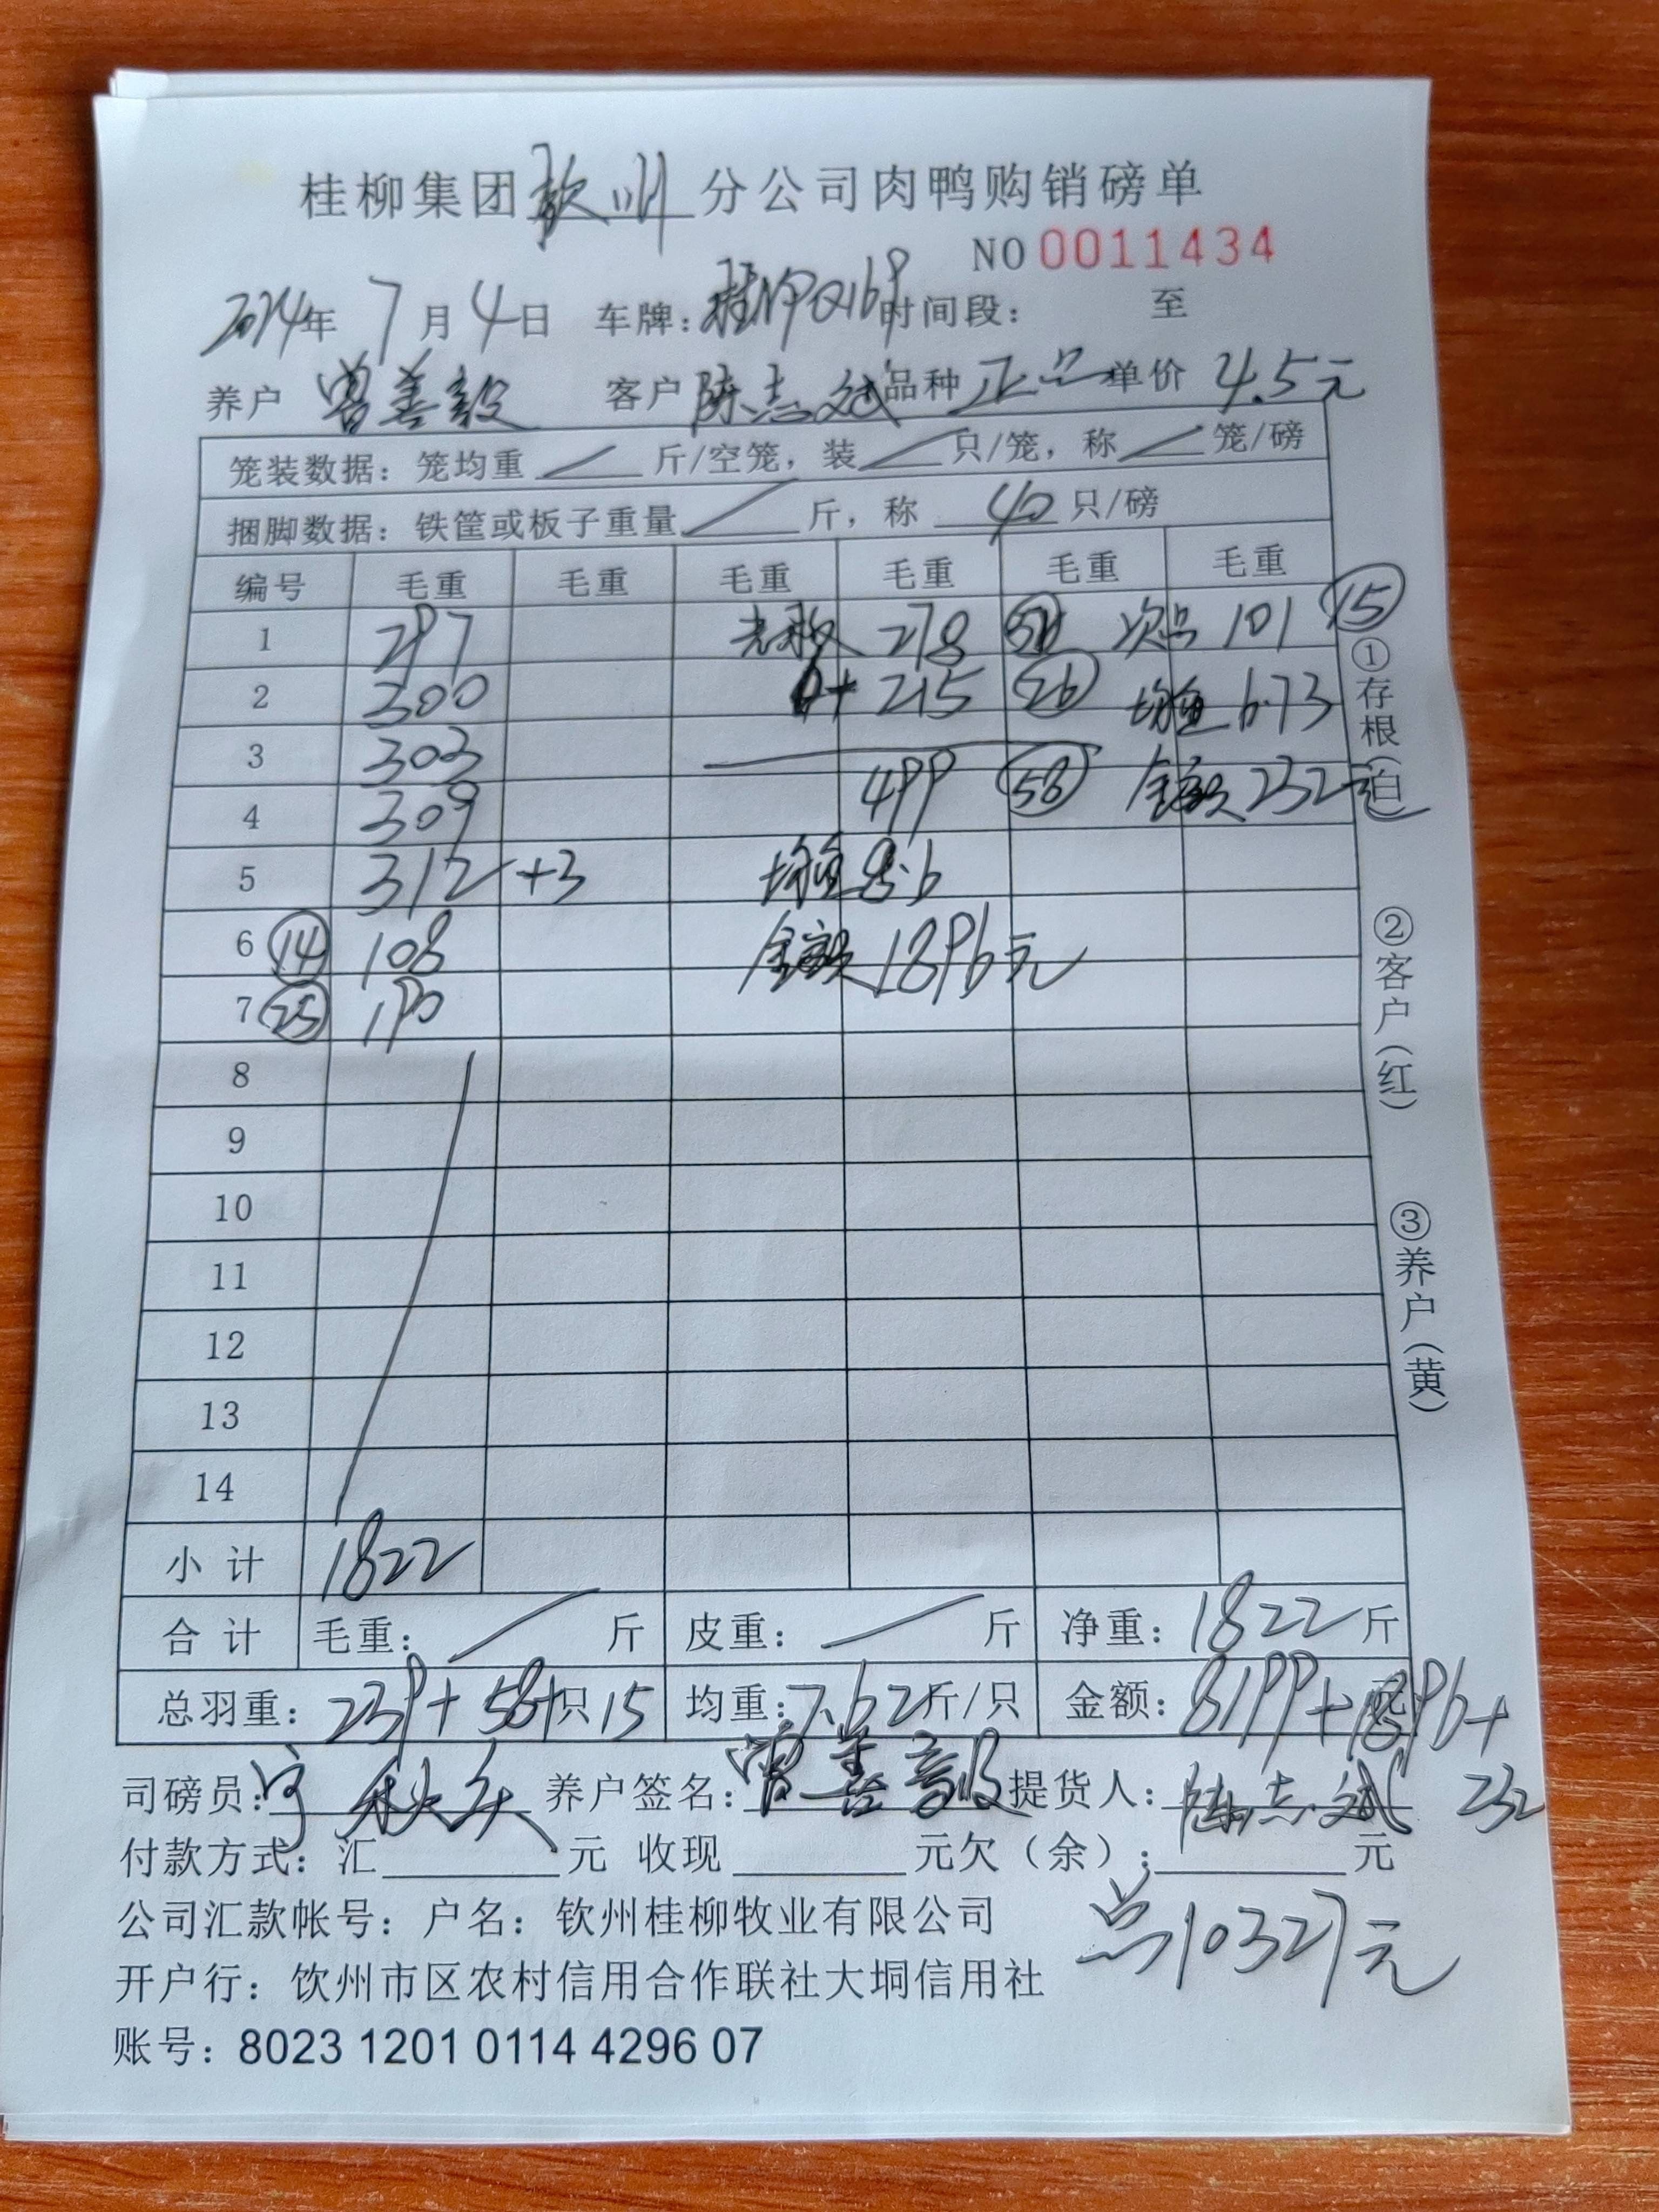 桂柳集团钦州分公司肉鸭购销磅单
NO 0011434
2024年 7月 4日 车牌: 时间段: 至
养户 曾善毅 客户 陈志斌 品种 正品 单价 4.5元
笼装数据: 笼均重 / 斤/空笼, 装 / 只/笼, 称 / 笼/磅
捆脚数据: 铁筐或板子重量 / 斤, 称 40 只/磅
编号 毛重 毛重 毛重 毛重 毛重 毛重
1 297 278 次品 101 ⑮
2 300 + 215 均重 6.73
3 303
4 309 499 58 金额 232元
5 312 +3 均重 8.6
6 ⑭ 108 金额 1896元
7 ㉕ 190
8
9
10
11
12
13
14
小计 1822
合计 毛重: / 斤 皮重: / 斤 净重: 1822 斤
总羽重: 239+58+只15 均重: 7.62斤/只 金额: 8199+1896+
司磅员: 养户签名: 曾善毅 提货人: 陈志斌 232
付款方式: 汇 元 收现 元欠(余): 元
公司汇款帐号: 户名: 钦州桂柳牧业有限公司
总10327元
开户行: 饮州市区农村信用合作联社大垌信用社
账号: 8023 1201 0114 4296 07
①存根(白)
②客户(红)
③养户(黄)